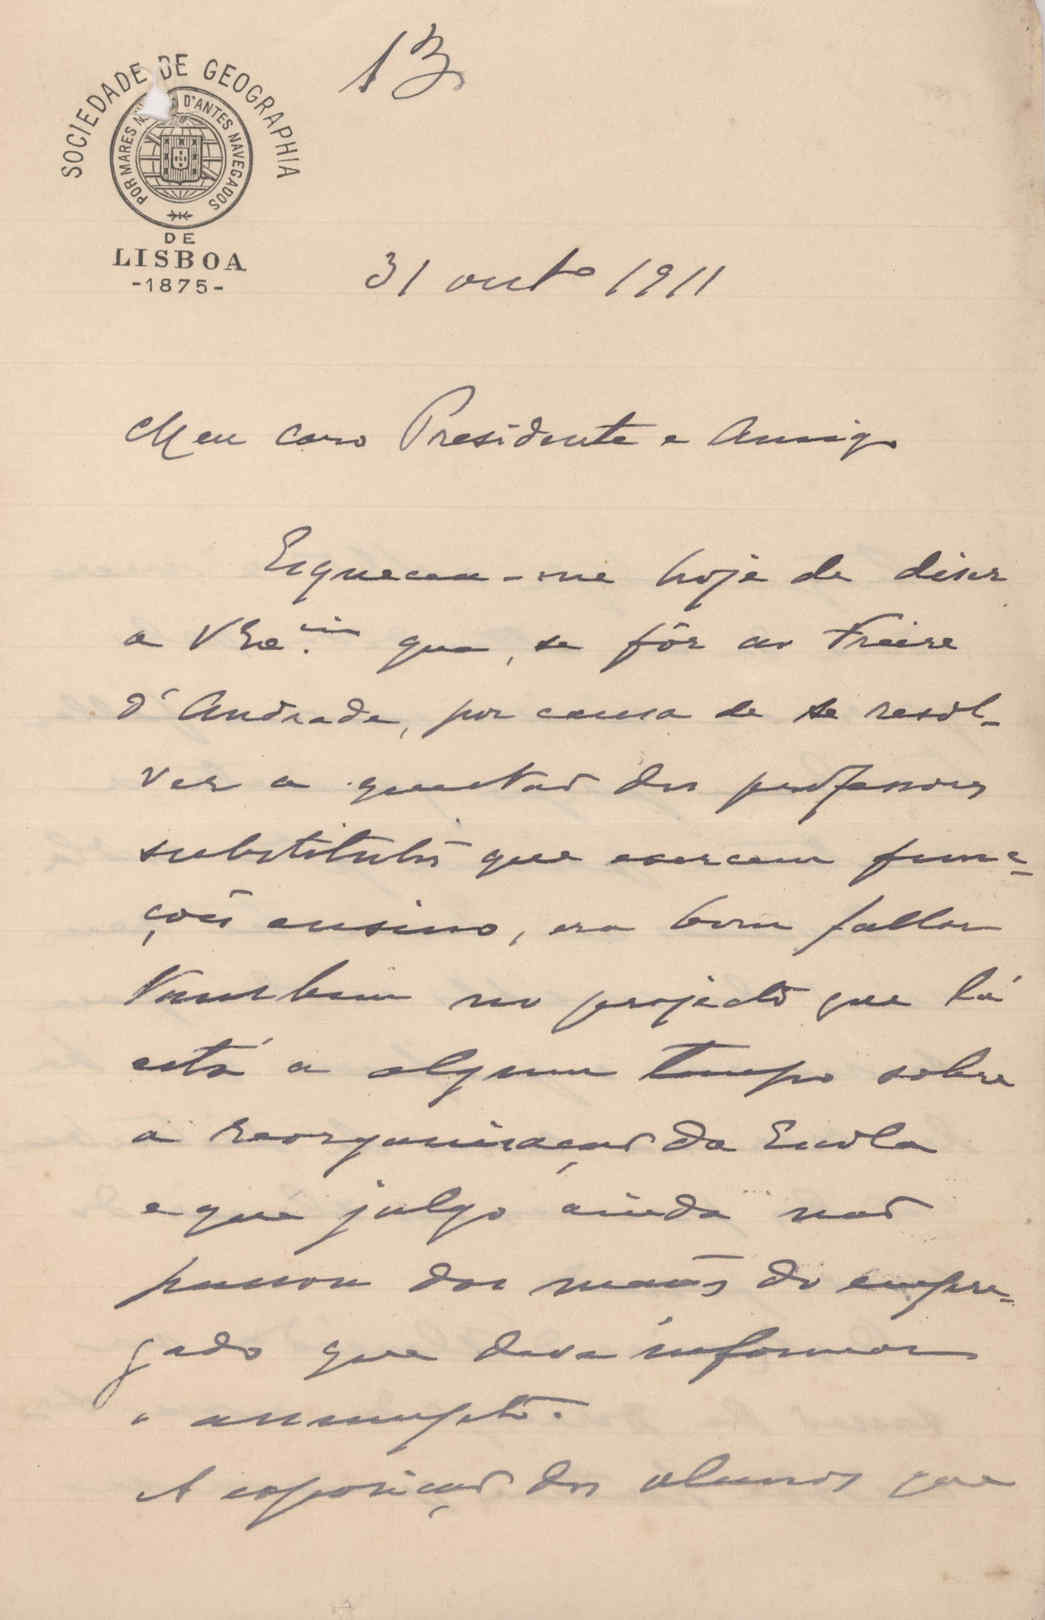 SOCIEDADE DE GEOGRAPHIA
POR MARES N D'ANTES NAVEGADOS
DE
LISBOA
-1875-
13
31 outo 1911
Meu caro Presidente e Amigo
Esqueceu-me hoje de diser
a VExa. que, se fôr ao Freire
d'Andrade, por causa de se resol-
ver a questão dos professores
substitutos que exercem func-
ções ensino, era bom fallar
tambem no projecto que lá
está a algum tempo sobre
a reorganisação da Escola
e que julgo ainda não
passou das mãos do empre-
gado que deve informar
o assumpto.
A exposição dos alumnos que